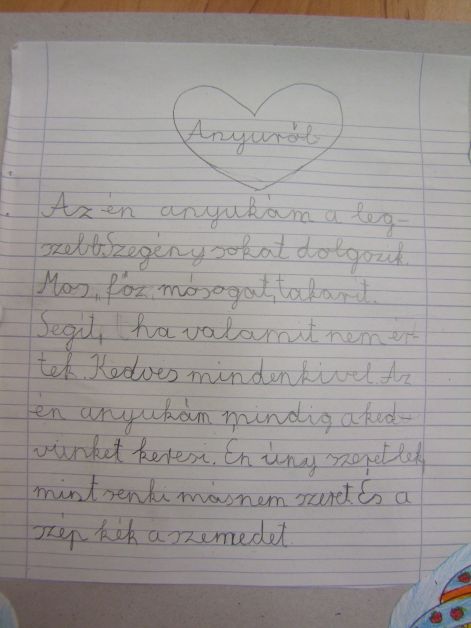 Anyuról
Az én anyukám a leg-
szebb. Szegény sokat dolgozik.
Mos, főz, mosogat, takarit.
Segit, ha valamit nem ér-
tek. Kedves mindenkivel. Az
én anyukám mindig a ked-
vünket keresi. Én úgy szeretlek,
mint senki másnem szeret. És a
szép kék a szemedet